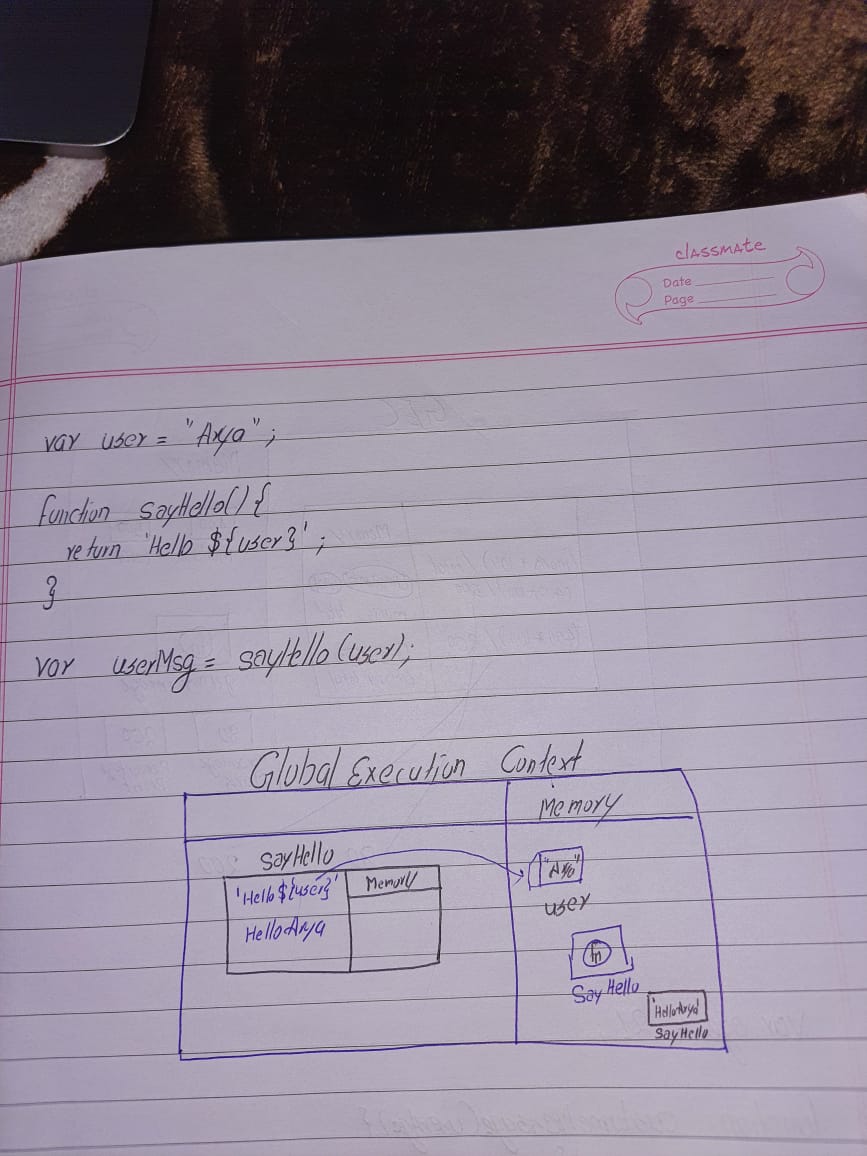 classmate
Date
Page
var user = "Arya";
function sayHello() {
return 'Hello ${user}';
}
var userMsg = sayHello(user);
Global Execution Context
Memory
sayHello
'Hello ${user}'
Memory
Hello Arya
"Arya"
user
fn
Say Hello
'Hello Arya'
sayHello